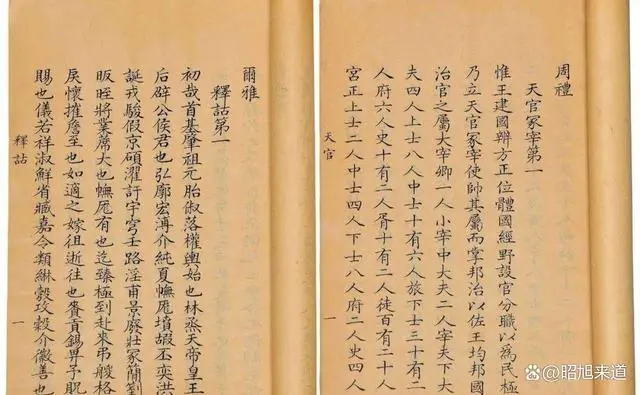 周禮
天官冢宰第一
惟王建國辨方正位體國經野設官分職以為民極
乃立天官冢宰使帥其屬而掌邦治以佐王均邦國
治官之屬大宰卿一人小宰中大夫二人宰夫下大
夫四人上士八人中士十有六人旅下士三十有二
人府六人史十有二人胥十有二人徒百有二十人
宮正上士二人中士四人下士八人府二人史四人
天官 一
爾雅
釋詁第一
初哉首基肇祖元胎俶落權輿始也林烝天帝皇王
后辟公侯君也弘廓宏溥介純夏幠厖墳嘏丕奕洪
誕戎駿假京碩濯訏宇穹壬路淫甫景廢壯冢簡箌
昄晊將業席大也幠厖有也迄臻極到赴來弔艐格
戾懷摧詹至也如適之嫁徂逝往也賚貢錫畀予貺
賜也儀若祥淑鮮省臧嘉令類綝彀攻穀介徽善也
釋詁 一
@昭旭来道